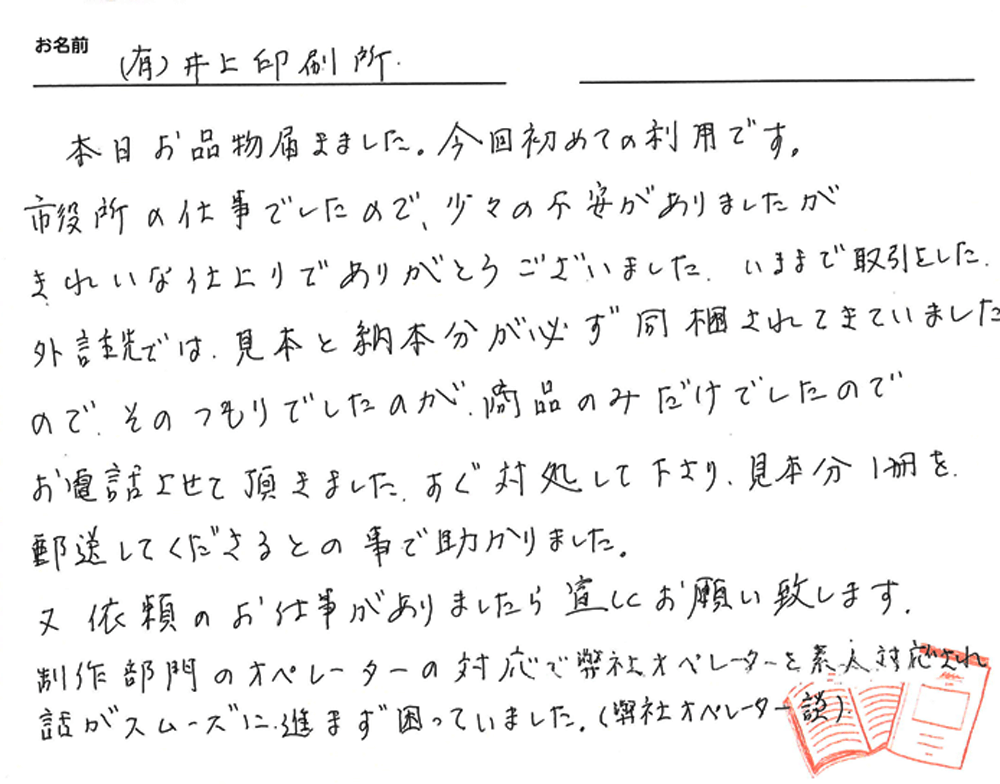 お名前 (有)井上印刷所.
本日お品物届きました。今回初めての利用です。
市役所の仕事でしたので、少々の不安がありましたが
きれいな仕上りでありがとうございました. いままで取引をした.
外註先では. 見本と納本分が必ず同梱されてきていました
ので. そのつもりでしたのが. 商品のみだけでしたので
お電話させて頂きました. すぐ対処して下さり、見本分1冊を.
郵送してくださるとの事で助かりました。
又依頼のお仕事がありましたら宜しくお願い致します.
制作部門のオペレーターの対応で弊社オペレーターを素人対応され
話がスムーズに進まず困っていました。(弊社オペレーター談)